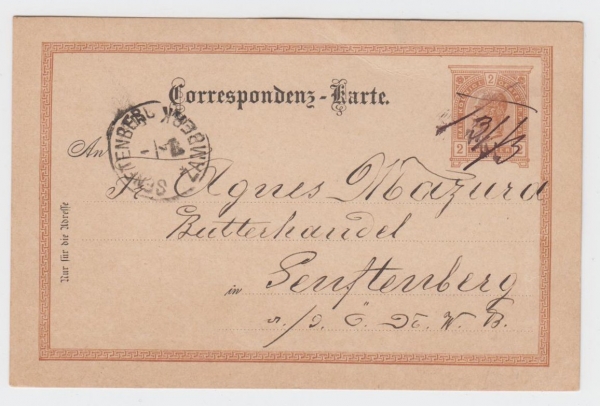 Correspondenz-Karte.
2
2 2
13/3
SENFTENBERG ŽAMBERK
An
Fr Agnes Mazura
Butterhandel
in Senftenberg
Nur für die Adresse